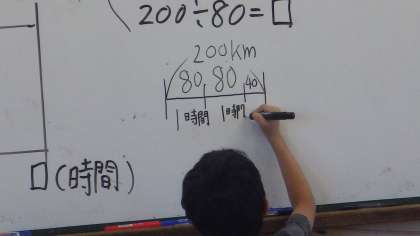 200÷80=□
200km
80 80 40
1時間 1時間
□(時間)